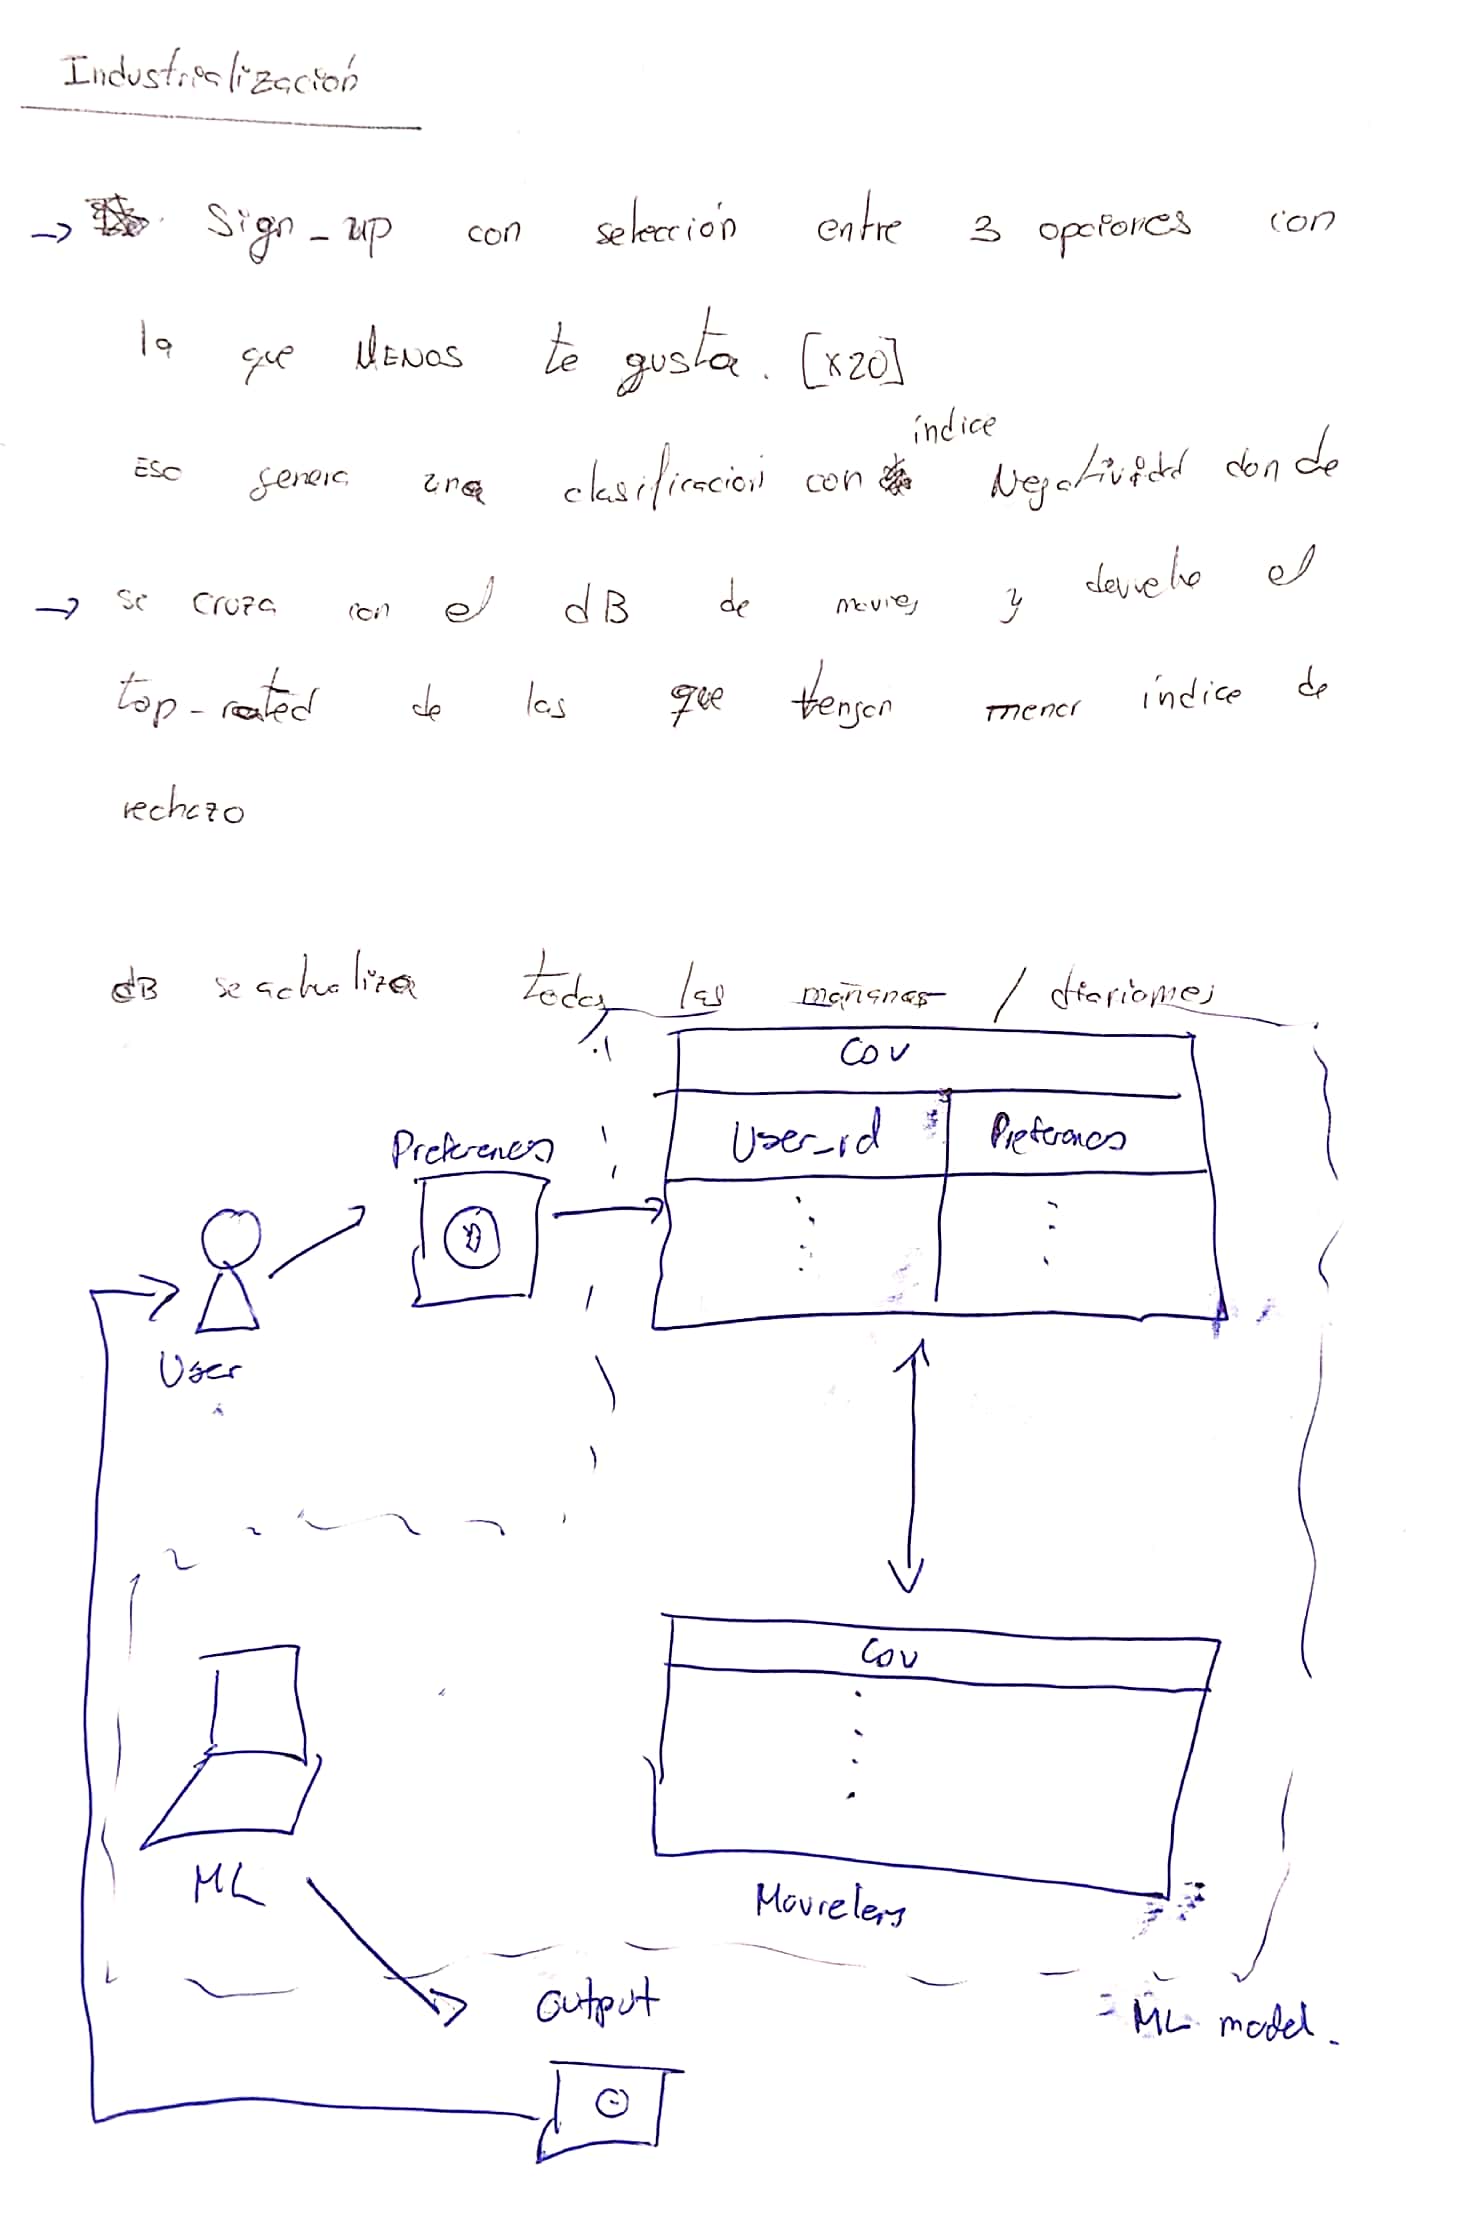 Industrialización
→ Sign_up con selección entre 3 opciones con
la que MENOS te gusta. [x20]
índice
Eso genera una clasificación con Negatividad donde
→ se cruza con el dB de movies y devuelve el
top-rated de las que tengan menor índice de
rechazo
dB se actualiza todas las mañanas /
COV
User_id
Preferences
Preferences
User
COV
ML
Movielens
Output
= ML model.